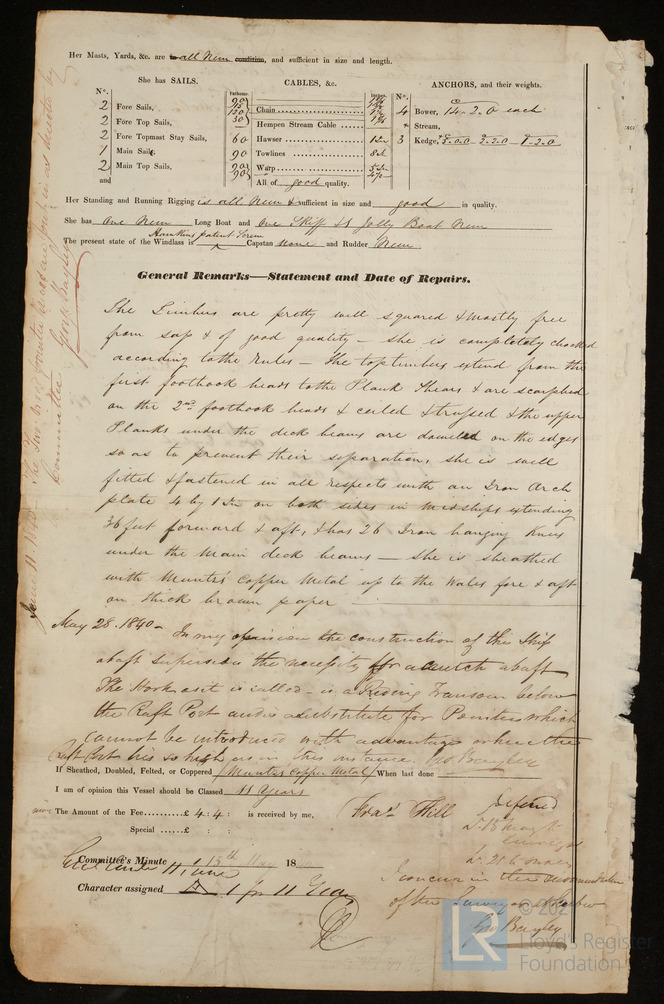 Her Masts, Yards, &c. are all New condition, and sufficient in size and length.
She has SAILS.
CABLES, &c.
ANCHORS, and their weights.
Nº.
Fathoms.
Inches.
Nº.
2 Fore Sails,
Chain
4 Bower, 14.2.0 each
2 Fore Top Sails,
Hempen Stream Cable
Stream,
2 Fore Topmast Stay Sails,
60 Hawser
3 Kedge,
1 Main Sails
90 Towlines
2 Main Top Sails,
Warp
and
All of good quality.
Her Standing and Running Rigging is all New & sufficient in size and good in quality.
She has One New Long Boat and One Skiff & Jolly Boat New
Hawkins patent Screw
The present state of the Windlass is Capstan none and Rudder New
General Remarks—Statement and Date of Repairs.
The Timbers are pretty well squared & mostly free
from sap & of good quality – She is completely chocked
according to the Rules – The top timbers extend from the
first foothook heads to the Plank Shears & are scarphed
on the 2nd foothook heads & ceiled & trussed & the upper
Planks under the deck beams are doweled on the edges
so as to prevent their separation, she is well
fitted & fastened in all respects with an Iron Arch
plate 4 by 1 In on both sides in Midships extending
36 feet forward & aft, & has 26 Iron hanging Knees
under the Main deck beams — She is sheathed
with Muntz's Copper Metal up to the Wales fore & aft
on thick brown paper
May 28. 1840 – In my opinion the construction of this Ship
abaft supersedes the necessity for a crutch abaft
The Hook as it is called – is a Riding Transom below
the Raft Post and is a substitute for Pointers which
cannot be introduced with advantage when the
Raft Post lies so high as in this instance. Geo Bayley
If Sheathed, Doubled, Felted, or Coppered Muntz's Copper Metal When last done
I am of opinion this Vessel should be Classed 11 Years
The Amount of the Fee £ 4 : 4 : is received by me,
Special £ : :
Hill
Deferred
Committee's Minute 15th May 18
11 June
Character assigned A 1 for 11 Years
I concur in the recommendation
of the Surveyor
Geo Bayley
June 11
Committee Geo Bayley
LR
© 202
Lloyd's Register
Foundation